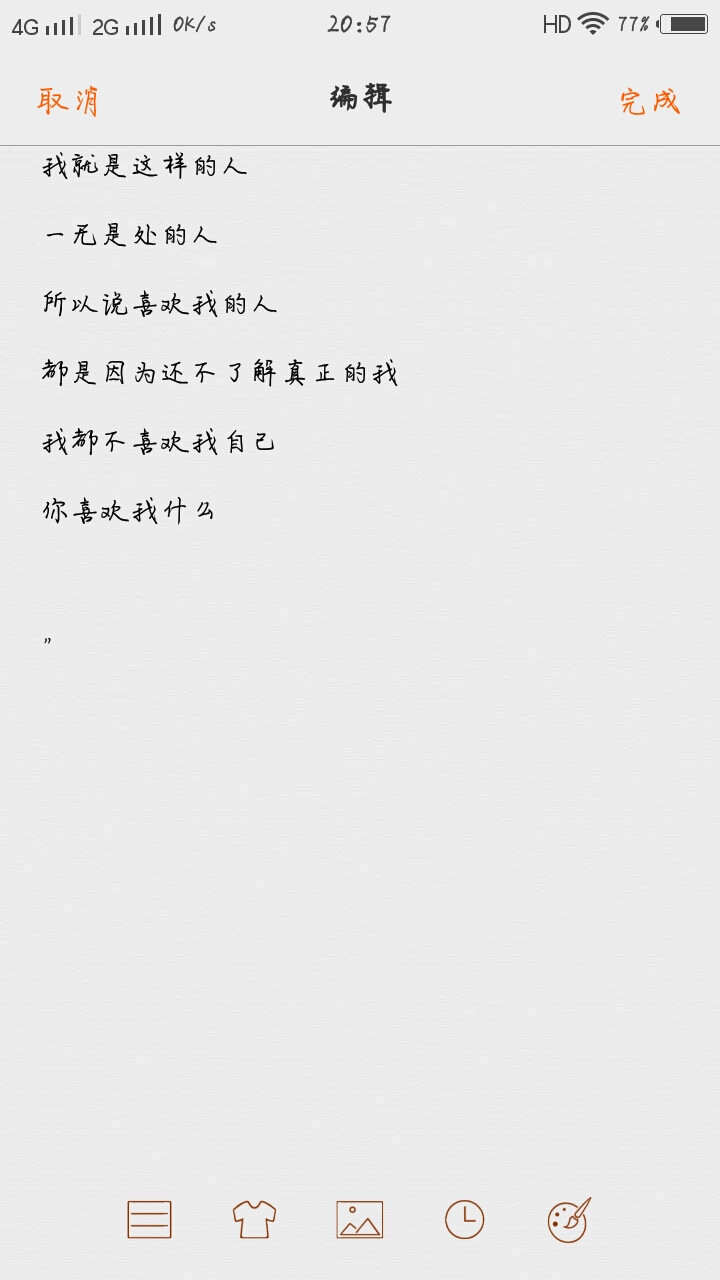 4G 2G 0K/s 20:57 HD 77%
取消 编辑 完成
我就是这样的人
一无是处的人
所以说喜欢我的人
都是因为还不了解真正的我
我都不喜欢我自己
你喜欢我什么
”